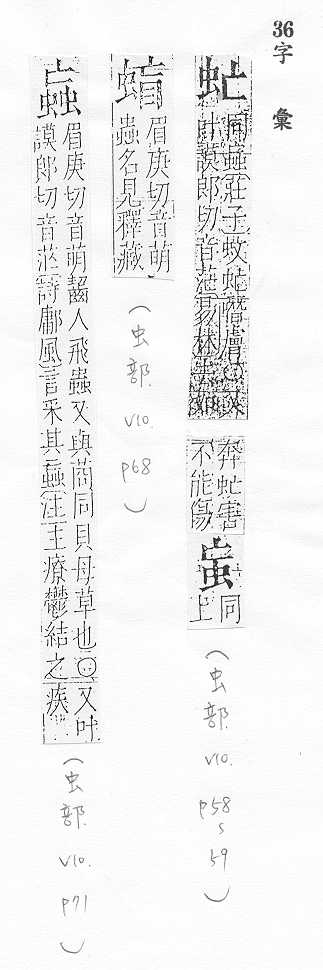 36字彙
虻
同蝱莊子蚊虻噆膚○又
叶謨郎切音茫易林
奔虻害
不能傷
蝱
同
上
(虫部 V10. P58~59)
蝐
眉庚切音萌
蟲名見釋藏
(虫部 V10. P68)
蝱
眉庚切音萌齧人飛蟲又與莔同貝母草也○又叶
謨郎切音茫詩鄘風言采其蝱注主療鬱結之疾
(虫部 V10. P71)